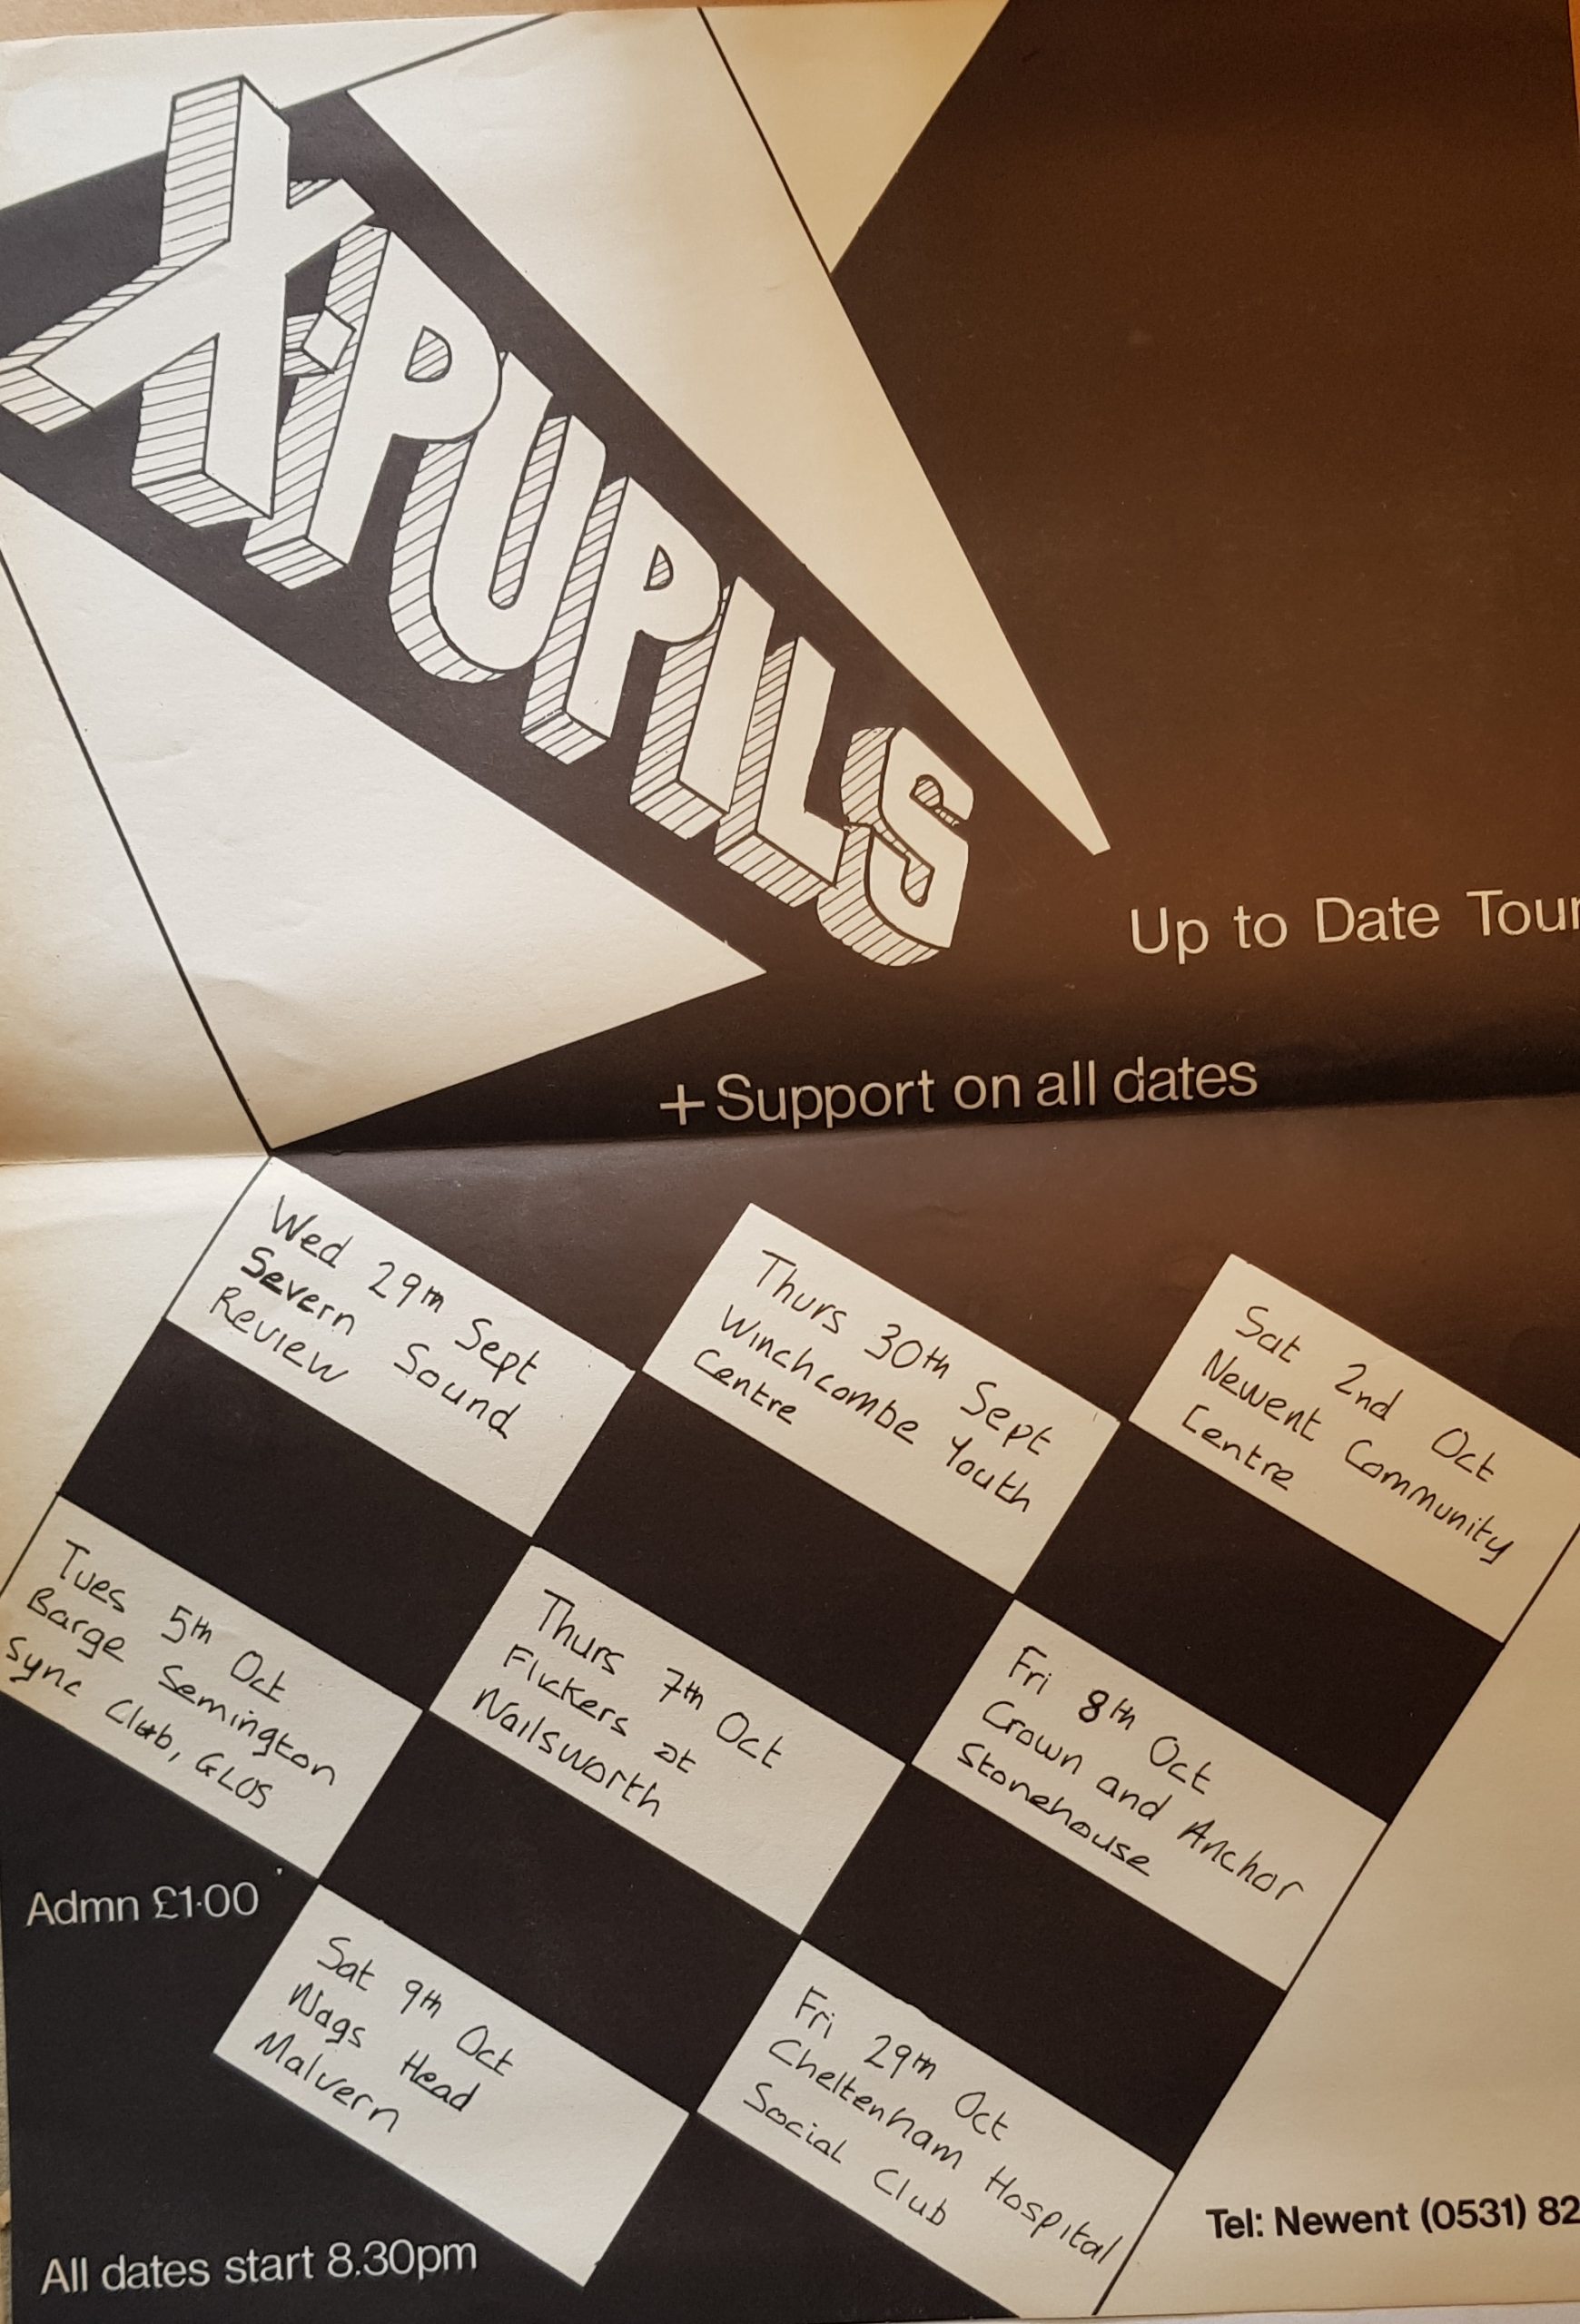 X-PUPILS
Up to Date Tour
+ Support on all dates
Wed 29th Sept
Severn Sound
Review
Thurs 30th Sept
Winchcombe Youth
Centre
Sat 2nd Oct
Newent Community
Centre
Tues 5th Oct
Barge Semington
Sync Club, GLOS
Thurs 7th Oct
Flickers at
Nailsworth
Fri 8th Oct
Crown and Anchor
Stonehouse
Admn £1·00
Sat 9th Oct
Nags Head
Malvern
Fri 29th Oct
Cheltenham Hospital
Social Club
Tel: Newent (0531) 82
All dates start 8.30pm